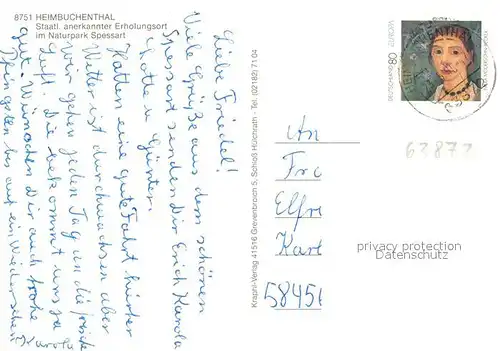 8751 HEIMBUCHENTHAL
Staatl. anerkannter Erholungsort
im Naturpark Spessart
Liebe Friedel!
Viele Grüße aus dem schönen
Spessart senden Dir Erich Karola
Lotte u. Günter.
Hatten eine gute Fahrt hierher
Wetter ist durchwachsen aber
wir gehen jeden Tag an die frische
Luft. Die bekommt uns ja
gut. Wünschen Dir auch frohe
Pfingsten bis auf ein Wiedersehen
Karola
Krapfll-Verlag 41516 Grevenbroich 5, Schloß Hülchrath - Tel. (02182) 71 04
DEUTSCHLAND 80 EUROPA
An
Fre
Elfre
Kart
58456
62872
privacy protection
Datenschutz